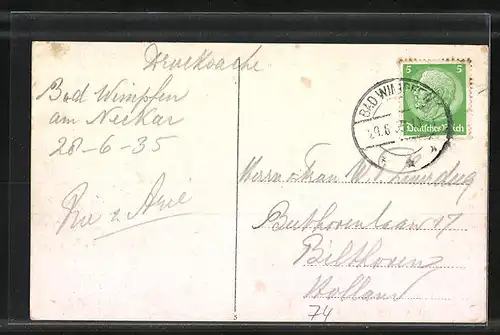 Drucksache
Bad Wimpfen
am Neckar
28-6-35
5 5
Deutsches Reich
BAD WIMPFEN
Herrn & Frau W.
Beethovenlaan 17
Bilthoven
Holland
74